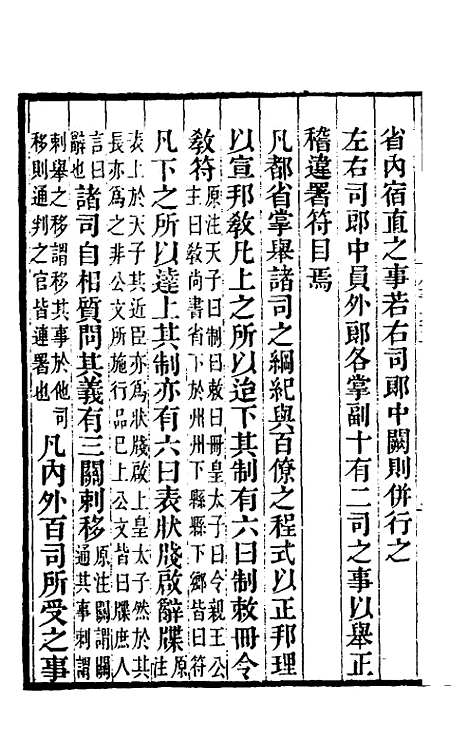 省內宿直之事若右司郎中闕則併行之
左右司郎中員外郎各掌副十有二司之事以舉正
稽違署符目焉
凡都省掌舉諸司之綱紀與百僚之程式以正邦理
以宣邦教凡上之所以迨下其制有六曰制敕冊令
教符原注天子曰制曰敕曰冊皇太子曰令親王公
主曰教尚書省下於州州下縣縣下鄉皆曰符
凡下之所以達上其制亦有六曰表狀牋啟辭牒原注
表上於天子其近臣亦為狀牋啟上皇太子然於其
長亦為之非公文所施行品已上公文皆曰牒庶人
言曰辭也
諸司自相質問其義有三關刺移原注關謂關
通其事刺謂
刺舉之移謂移其事於他司
移則通判之官皆連署也
凡內外百司所受之事